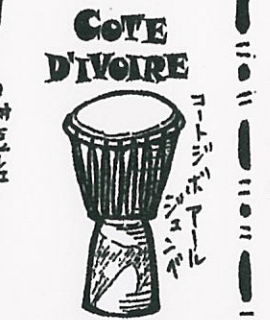 COTE
D'IVOIRE
コートジボアール
ジェンベ